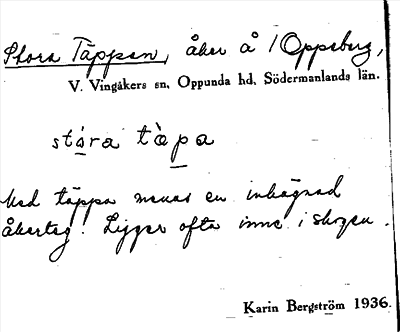 Stora Täppan, åker å /Oppeberg,
V. Vingåkers sn, Oppunda hd, Södermanlands län.
stóra tàpa
Med täppa menas en inhägnad
åkerteg. Ligger ofta inne i skogen.
Karin Bergström 1936.